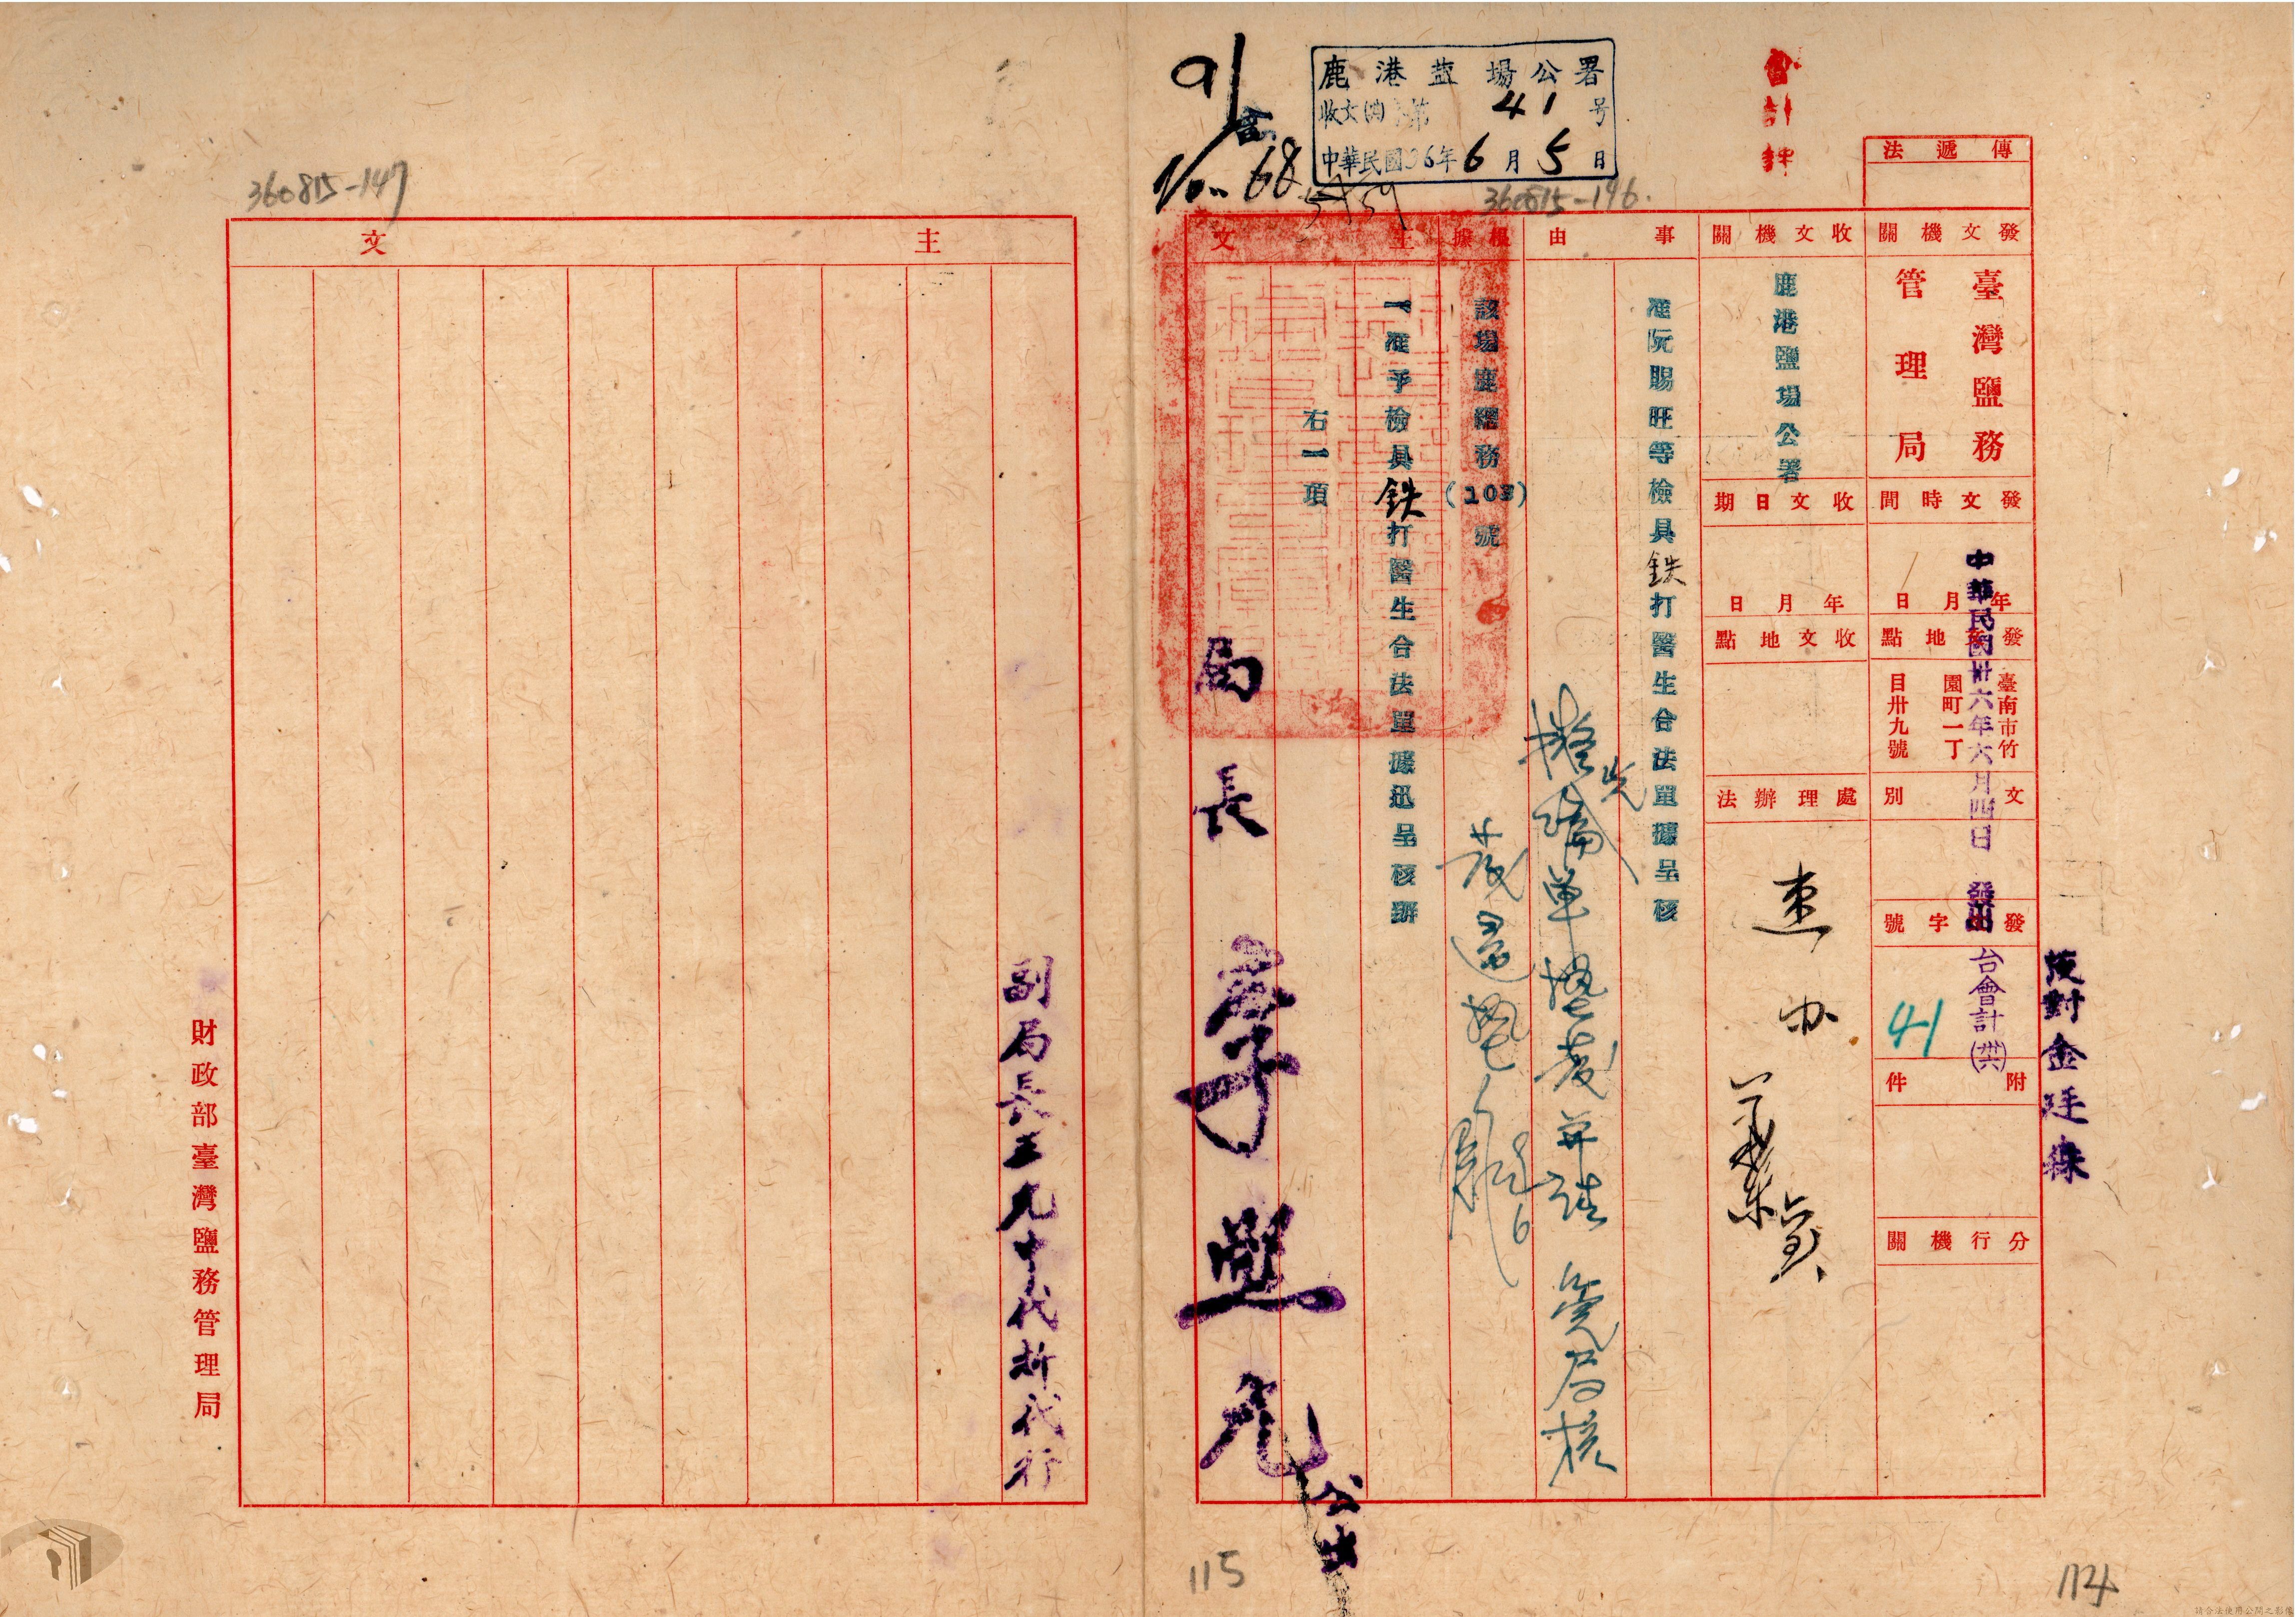 會計
鹿港盐場公署
收文 第41号
中華民國36年6月5日
91
No. 68
360815-146.
360815-147
傳遞法
發文機關
臺灣鹽務
管理局
發文時間
年月日
中華民國卅六年六月四日 發出
發文地點
臺南市竹
園町一丁
目卅九號
文別
發文字號
台會計
41
附件
分行機關
校對金廷森
收文機關
鹿港鹽場公署
收文日期
年月日
收文地點
處理辦法
速办
事由
准阮賜旺等檢具鉄打醫生合法單據呈核
根據
該場鹿總務(103)號
主文
一准予檢具鉄打醫生合法單據迅呈核辦
右一項
局長
公出
主文
副局長
代拆代行
財政部臺灣鹽務管理局
115
114
請合法使用公開之影像